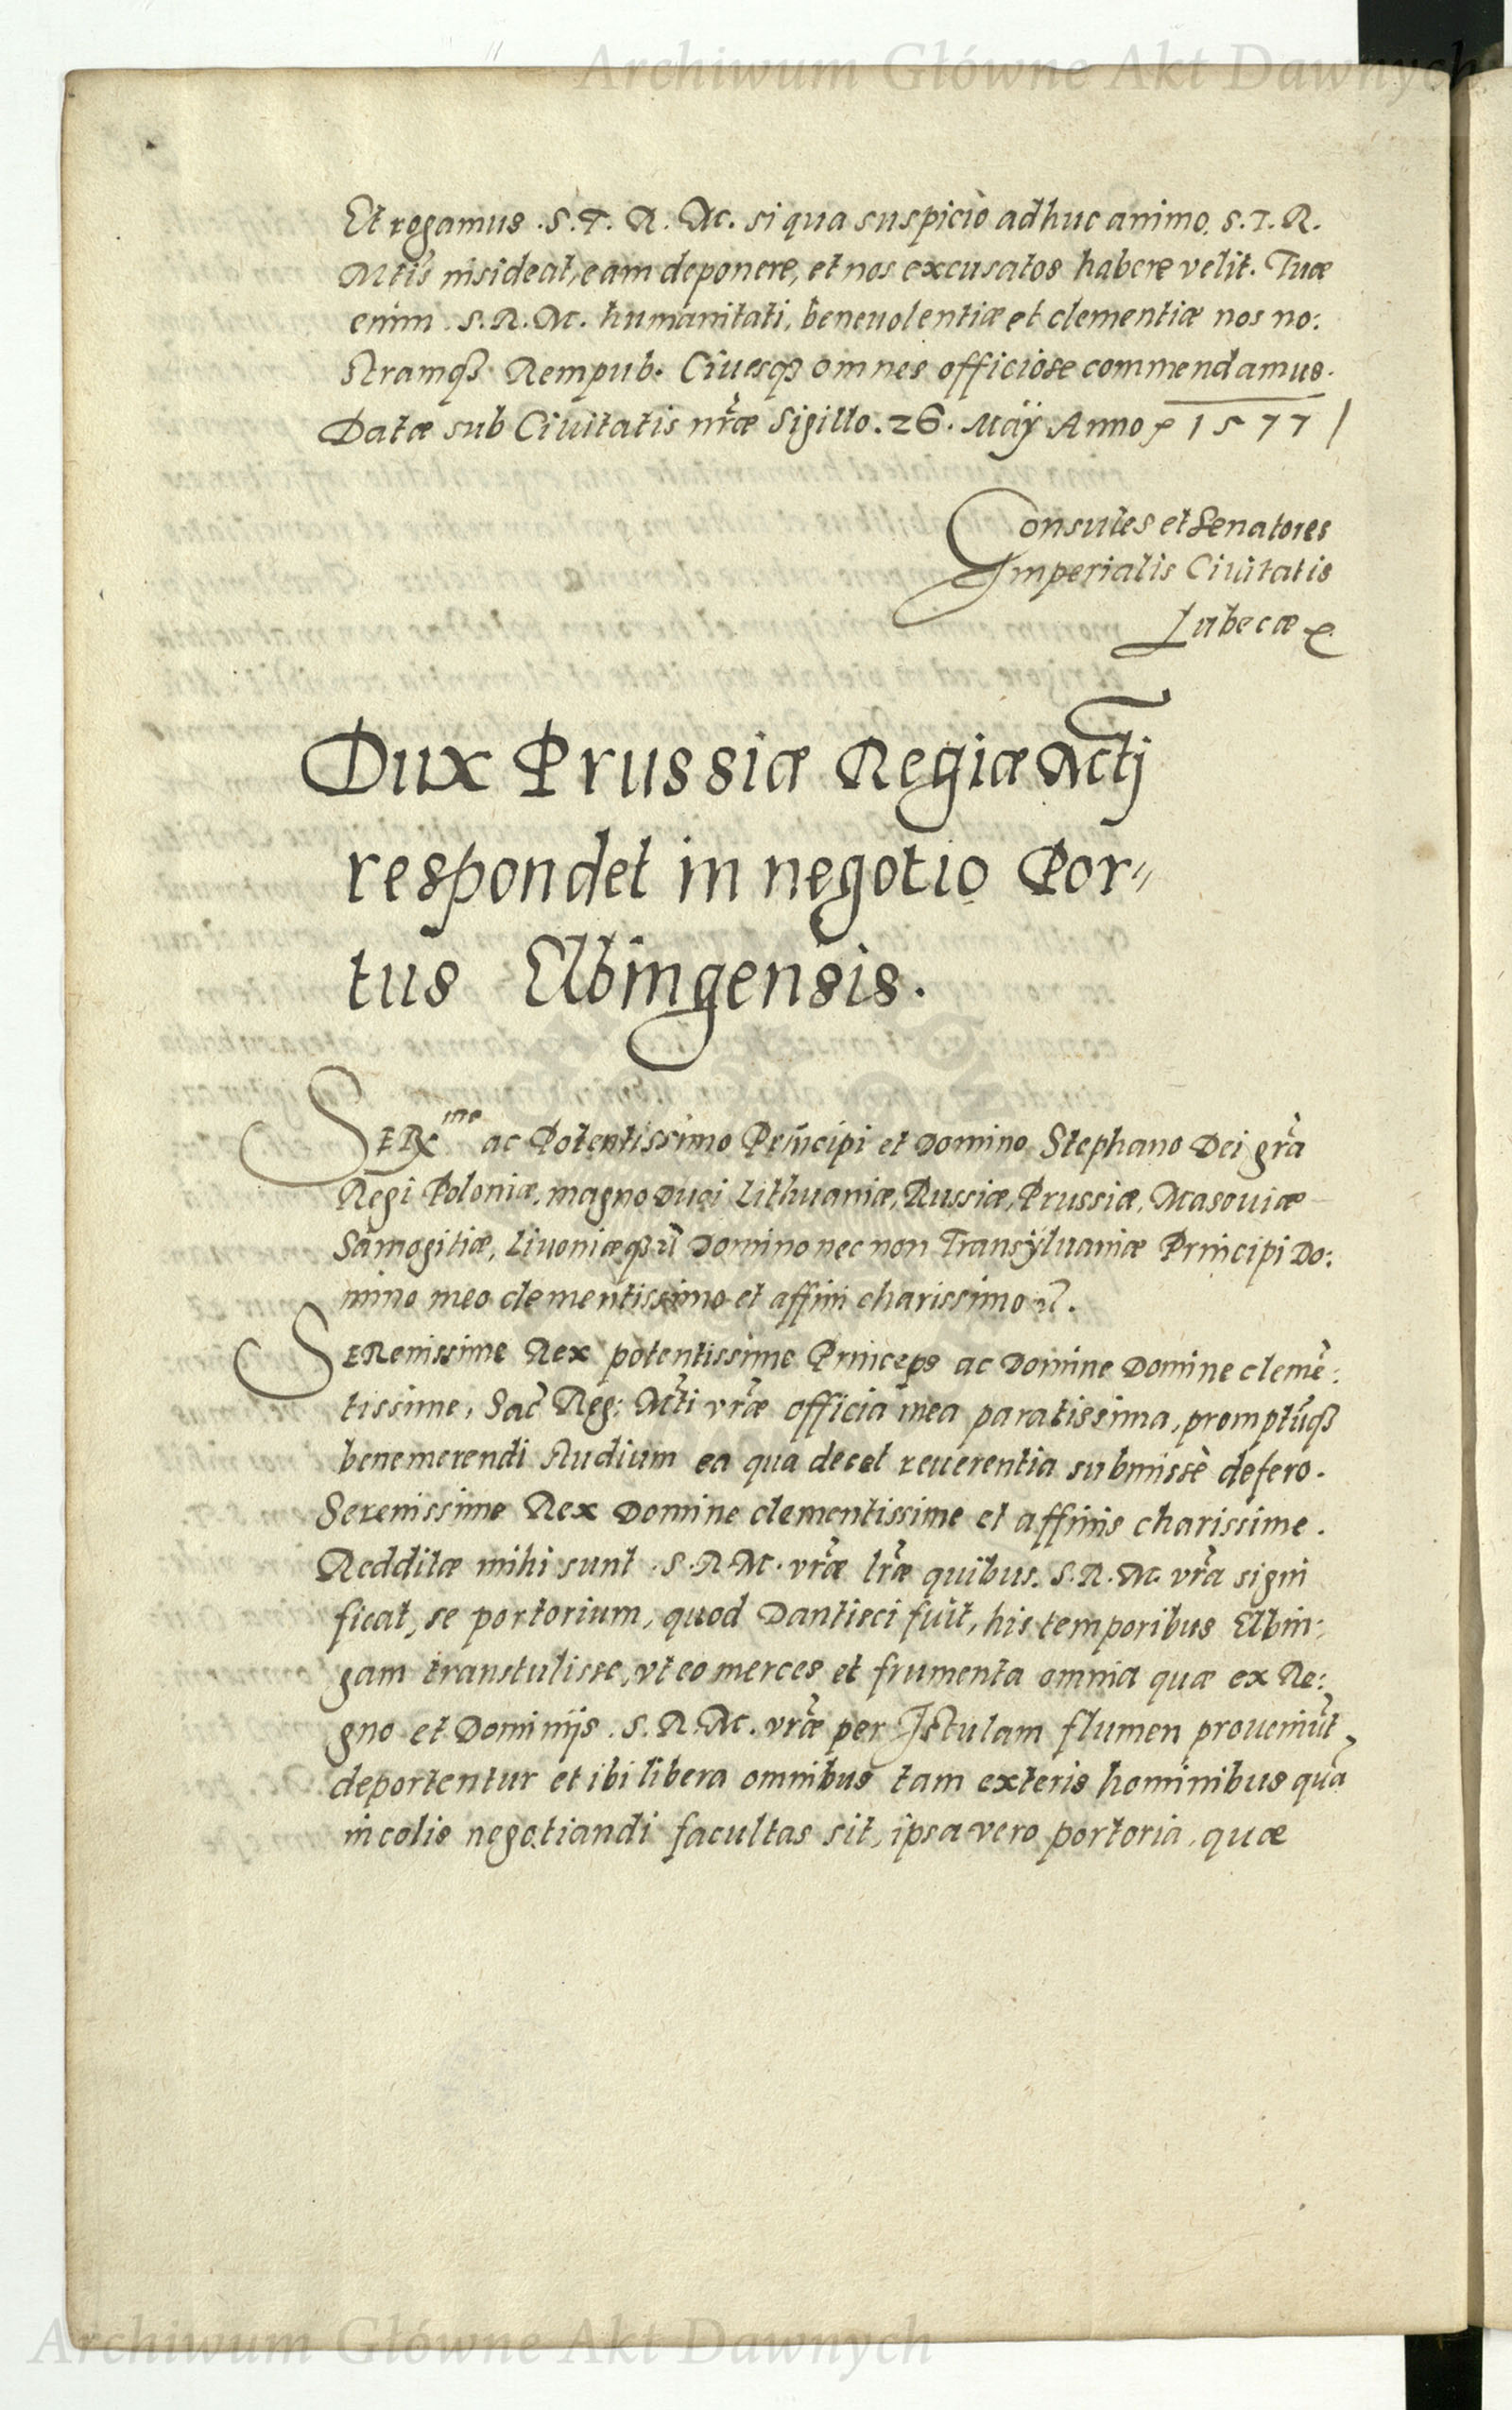 Archiwum Główne Akt Dawnych
Et rogamus .S.T.R. Mt. si qua suspicio adhuc animo. S.T.R.
Mtis insideat, eam deponere, et nos excusatos habere velit. Tuæ
enim .S.R.Mt. humanitati, beneuolentiæ et clementiæ nos no:
stramqȝ Rempub. Ciuesqȝ omnes officiose commendamus.
Datæ sub Ciuitatis nr̃æ Sigillo. 26. Maÿ Anno 1577
Consules et Senatores
Imperialis Ciuitatis
Lubecæ
Dux Prussiæ Regiæ Mtj
respondet in negotio Por=
tus Elbingensis.
SERmo ac Potentissimo Principi et Domino Stephano Dei gr̃a
Regi Poloniæ, magno Duci Lithuaniæ, Russiæ, Prussiæ, Masouiæ
Samogitiæ, Liuoniæqȝ Domino nec non Transÿluaniæ Principi Do:
mino meo clementissimo et affini charissimo.
SERenissime Rex potentissime Princeps ac Domine Domine clemẽ:
tissime, Sac̃ Reg: Mt̃i vr̃æ officia mea paratissima, promptũqȝ
benemerendi studium ea qua decet reuerentia submissè defero.
Serenissime Rex Domine clementissime et affinis charissime.
Redditæ mihi sunt .S.R.Mt. vr̃æ lr̃æ quibus. S.R.Mt. vr̃a signi
ficat, se portorium, quod Dantisci fuit, his temporibus Elbin:
gam transtulisse, vt eo merces et frumenta omnia quæ ex Re:
gno et Dominijs .S.R.Mt. vr̃æ per Istulam flumen proueniũt,
deportentur et ibi libera omnibus tam exteris hominibus quã
incolis negotiandi facultas sit, ipsa vero portoria, quæ
Archiwum Główne Akt Dawnych